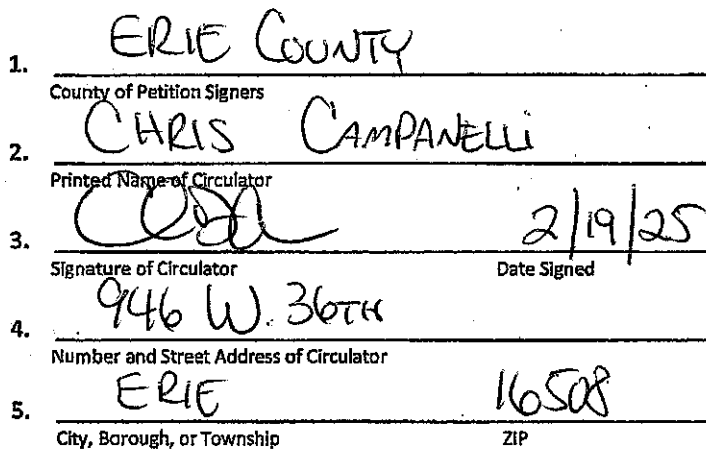 1. ERIE COUNTY
County of Petition Signers
2. CHRIS CAMPANELLI
Printed Name of Circulator
3. 2/19/25
Signature of Circulator Date Signed
4. 946 W. 36TH
Number and Street Address of Circulator
5. ERIE 16508
City, Borough, or Township ZIP